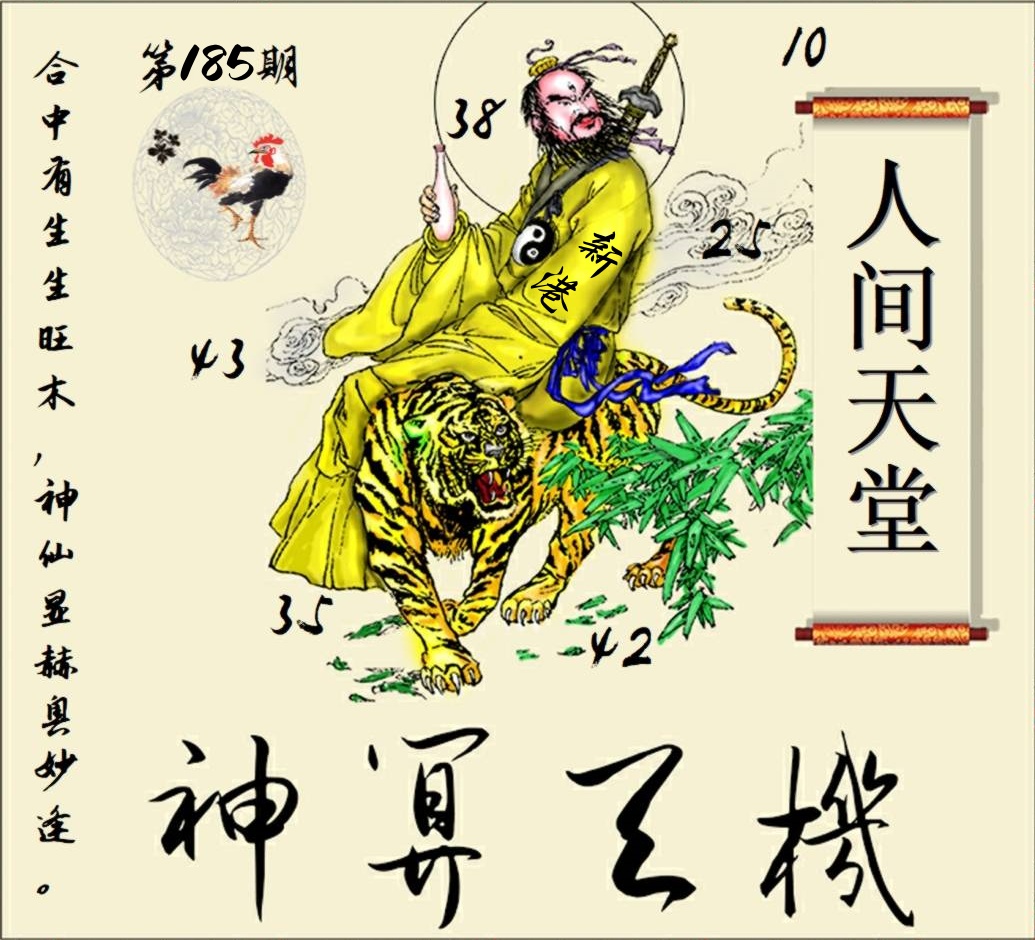 第185期
10
38
25
43
35
42
新港
人间天堂
合中有生生旺木，神仙显赫奥妙逢。
神算天機